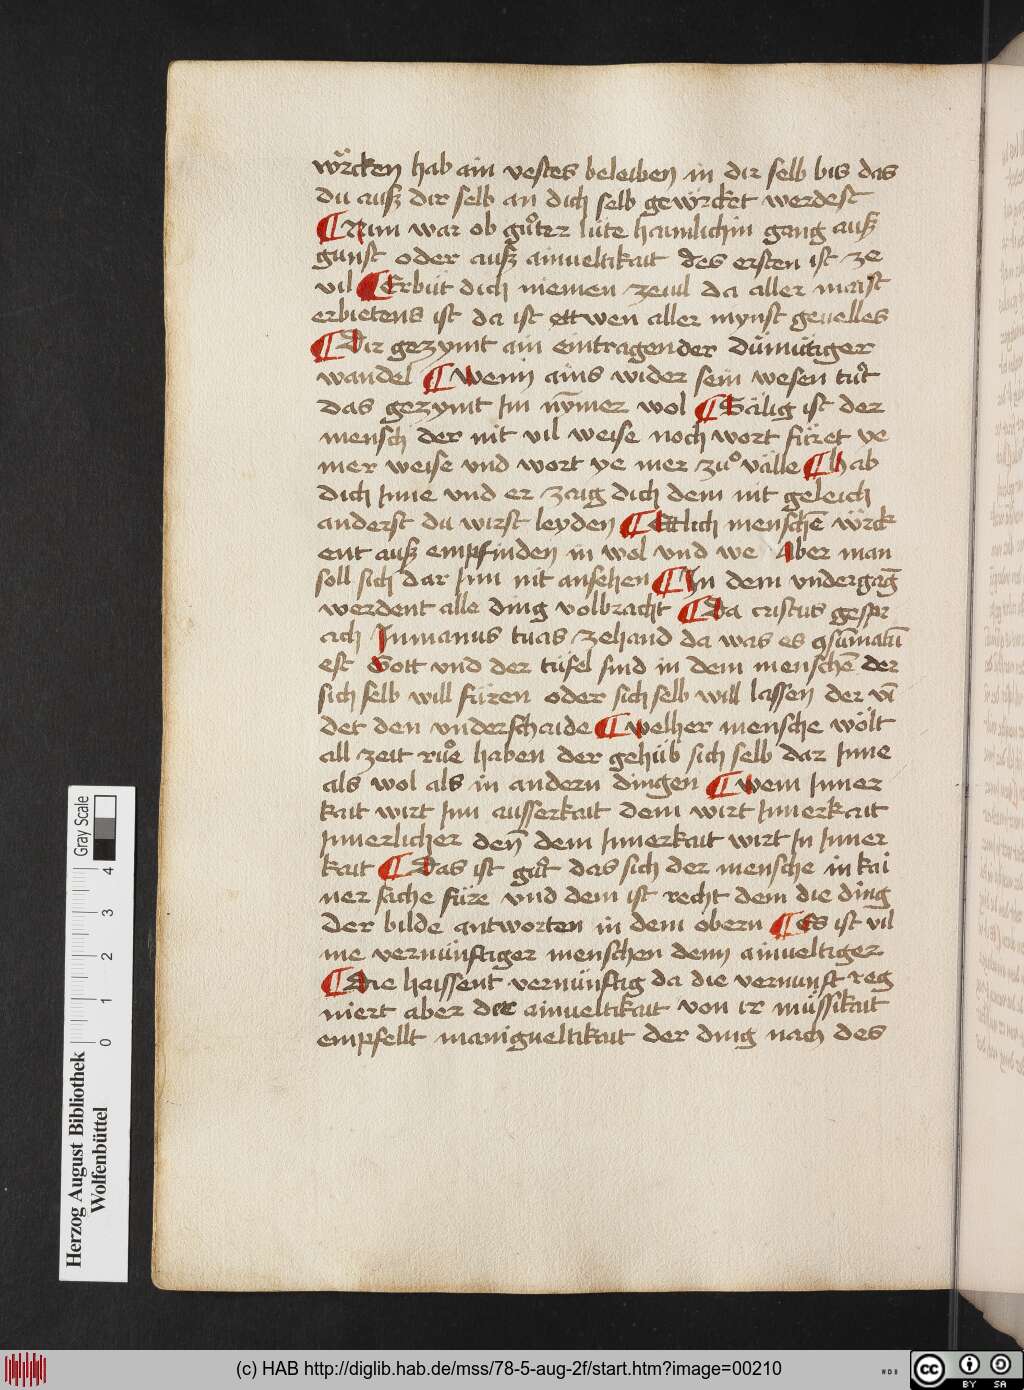 wo̊rcken hab ain vestes beleiben in dir selb bis das
du ausz dir selb an dich selb gewürcket werdest
¶ Nim war ob gůter lüte haimlichin gang ausz
gunst oder ausz ainueltikait des ersten ist ze
vil ¶ Erbüt dich niemen zeuil da aller maist
erbietens ist da ist ettwen aller mynst geuelles
¶ Dir gezymt ain eintragender dümütiger
wandel ¶ wenn ains wider sein wesen tůt
das gezymt Im nȳmer wol ¶ Sälig ist der
mensch der nit vil weise noch wort füret ye
mer weise vnd wort ye mer zůuälle ¶ hab
dich Inne vnd er zaig dich dem nit geleich
anderst du wirst leyden ¶ Ettlich menschē würck
ent ausz empfinden in wol vnd we Aber man
soll sich dar Inn nit ansehen ¶ In dem vndergāg
werdent alle ding volbracht ¶ Da cristus gespr
ach Inmanus tuas zehand da was es ꝯsūmatū
est Gott vnd der tüfel sind in dem menschē der
sich selb will füren oder sich selb will lassen der vī
det den vnderschaide ¶ welher mensche wölt
all zeit růe haben der gehüb sich selb dar Inne
als wol als in andern dingen ¶ wem Inner
kait wirt Inn ausserkait dem wirt Innerkait
Innerlicher deñ dem Innerkait wirt In Inner
kait ¶ Das ist gůt das sich der mensche in kai
ner sache füre vnd dem ist recht dem die ding
der bilde antworten in dem obern ¶ Es ist vil
me vernünftiger menschen denn ainueltiger
¶ Die haissent vernünftig da die vernunft reg
niert aber der ainueltikait von ir müssikait
empfellt manigueltikait der ding nach des
Gray Scale
0 1 2 3 4
Herzog August Bibliothek
Wolfenbüttel
(c) HAB http://diglib.hab.de/mss/78-5-aug-2f/start.htm?image=00210
cc BY SA